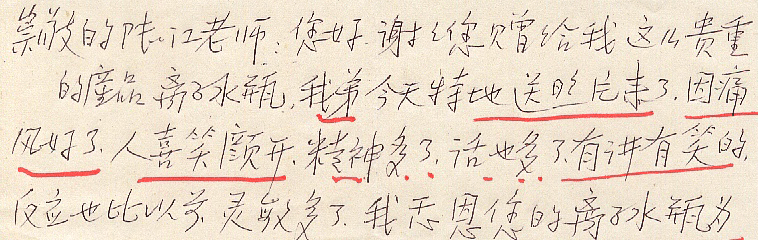 崇敬的陆江老师：您好.谢谢您赠给我这么贵重
的产品离子水瓶，我弟今天特地送照片来了.因痛
风好了.人喜笑颜开.精神多了.话也多了.有讲有笑的.
反应也比以前灵敏多了.我忘恩您的离子水瓶为